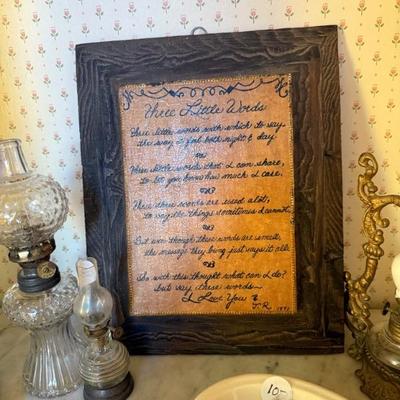 Three Little Words
Three little words with which to say
the way I feel both night & day
Three little words that I can share,
to let you know how much I care.
These three words are used a lot,
to say the things sometimes I cannot.
But even though these words are small
the message they bring just says it all.
So with this thought what can I do?
but say these words~
I Love You
J.R. 1991
10-